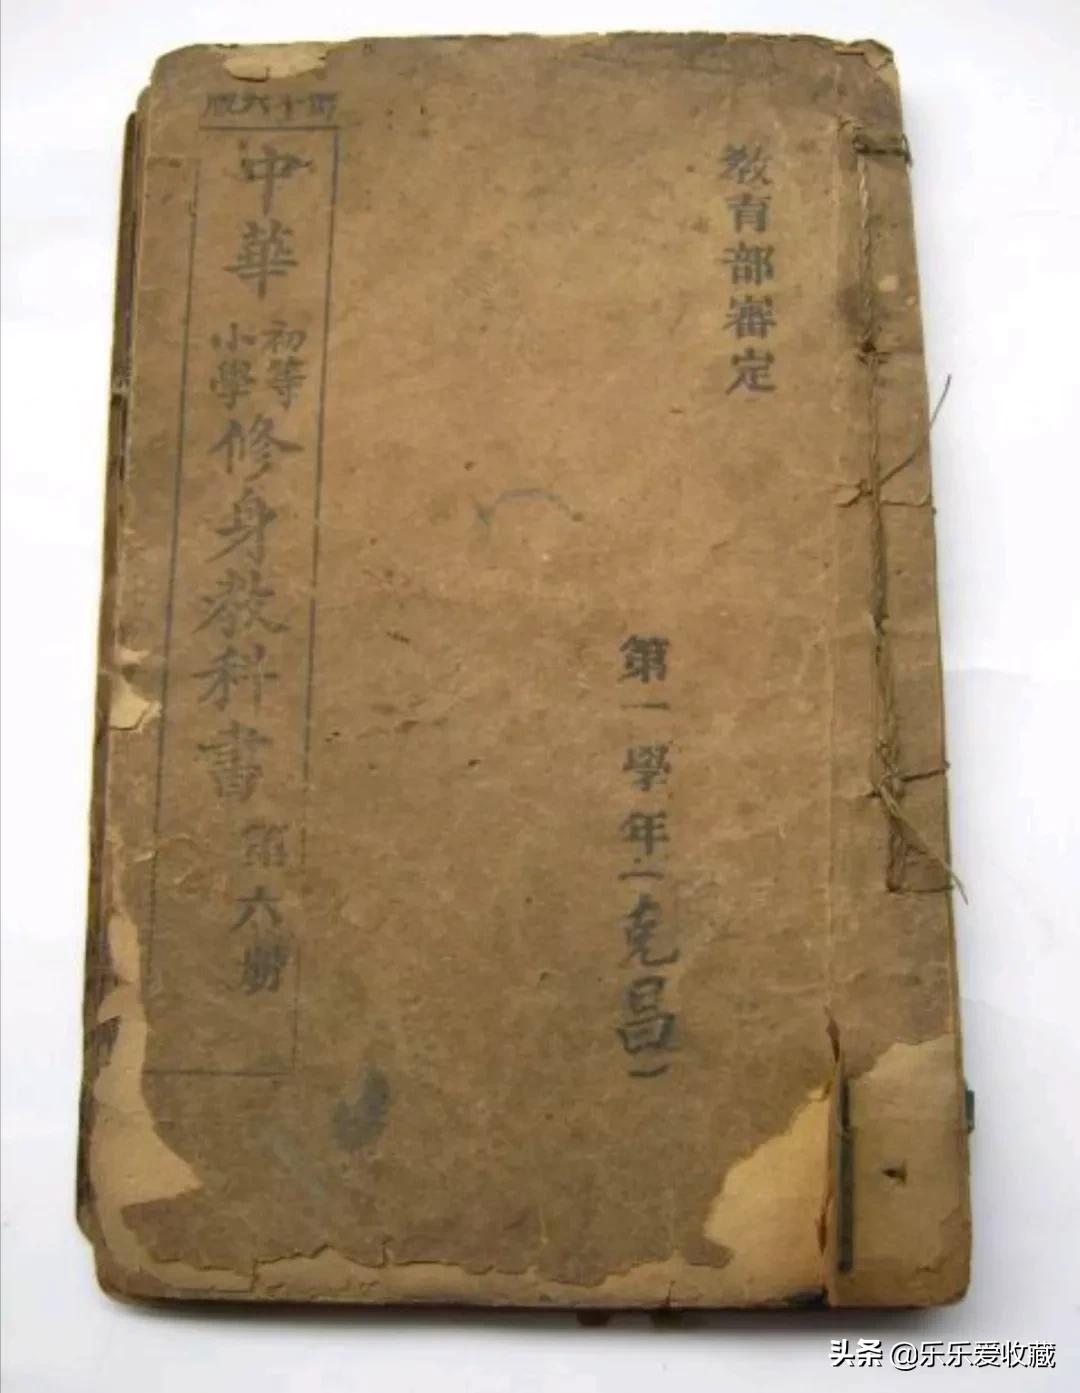 教育部審定
第一學年（克昌）
中華初等小學修身教科書 第六册
头条 @乐乐爱收藏